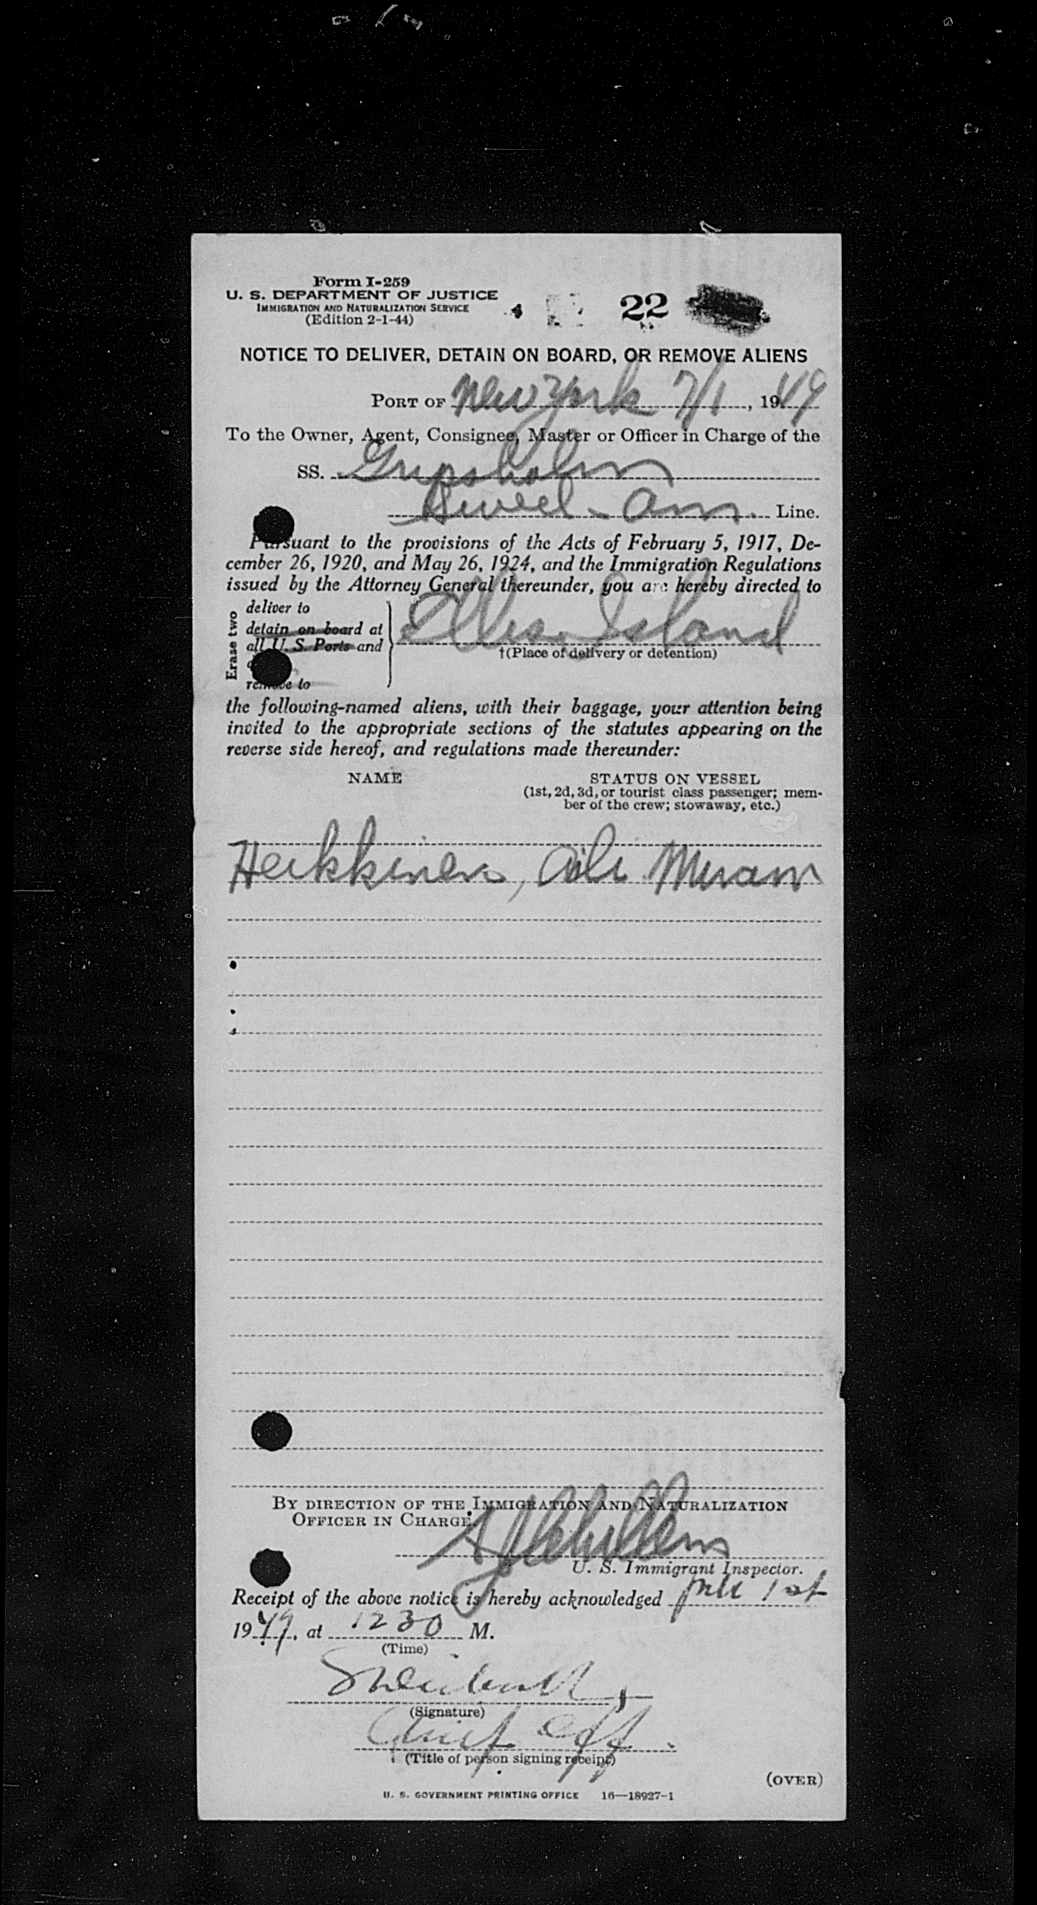 Form I-259
U. S. DEPARTMENT OF JUSTICE
IMMIGRATION AND NATURALIZATION SERVICE
(Edition 2-1-44)
22
NOTICE TO DELIVER, DETAIN ON BOARD, OR REMOVE ALIENS
PORT OF New York 7/1, 1949
To the Owner, Agent, Consignee, Master or Officer in Charge of the
SS. Gripsholm
Swed - Am. Line.
Pursuant to the provisions of the Acts of February 5, 1917, De-
cember 26, 1920, and May 26, 1924, and the Immigration Regulations
issued by the Attorney General thereunder, you are hereby directed to
Erase two
deliver to
detain on board at
all U. S. Ports and
remove to
Ellis Island
†(Place of delivery or detention)
the following-named aliens, with their baggage, your attention being
invited to the appropriate sections of the statutes appearing on the
reverse side hereof, and regulations made thereunder:
NAME STATUS ON VESSEL
(1st, 2d, 3d, or tourist class passenger; mem-
ber of the crew; stowaway, etc.)
Heikkinen, Aili Miriam
BY DIRECTION OF THE IMMIGRATION AND NATURALIZATION
OFFICER IN CHARGE.
U. S. Immigrant Inspector.
Receipt of the above notice is hereby acknowledged 1st
1949, at 1230 M.
(Time)
(Signature)
Chief Off.
(Title of person signing receipt)
(OVER)
U. S. GOVERNMENT PRINTING OFFICE 16—18927-1